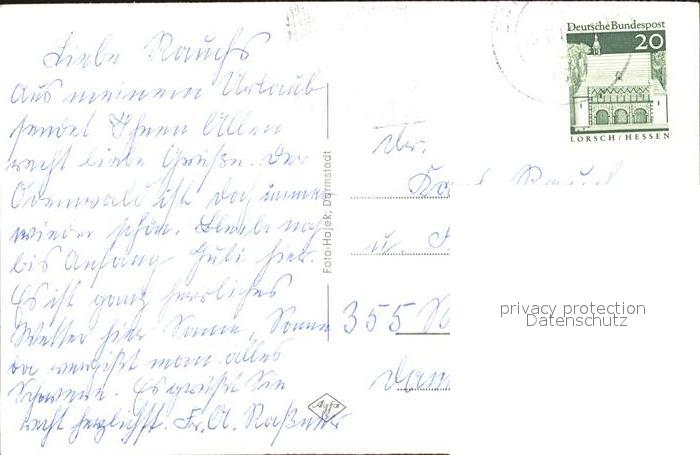 Liebe Rauchs
Aus meinem Urlaub
sendet Ihnen Allen
recht liebe Grüße. Der
Odenwald ist doch immer
wieder schön. Bleibe noch
bis Anfang Juli hier.
Es ist ganz herrliches
Wetter hier Sonne, Sonne
da vergißt man alles
Schwere. Es grüßt Sie
recht herzlichst. Fr. A.
Foto-Hajek, Darmstadt
Agfa
Deutsche Bundespost
20
LORSCH/HESSEN
Rauch
u.
355
privacy protection
Datenschutz